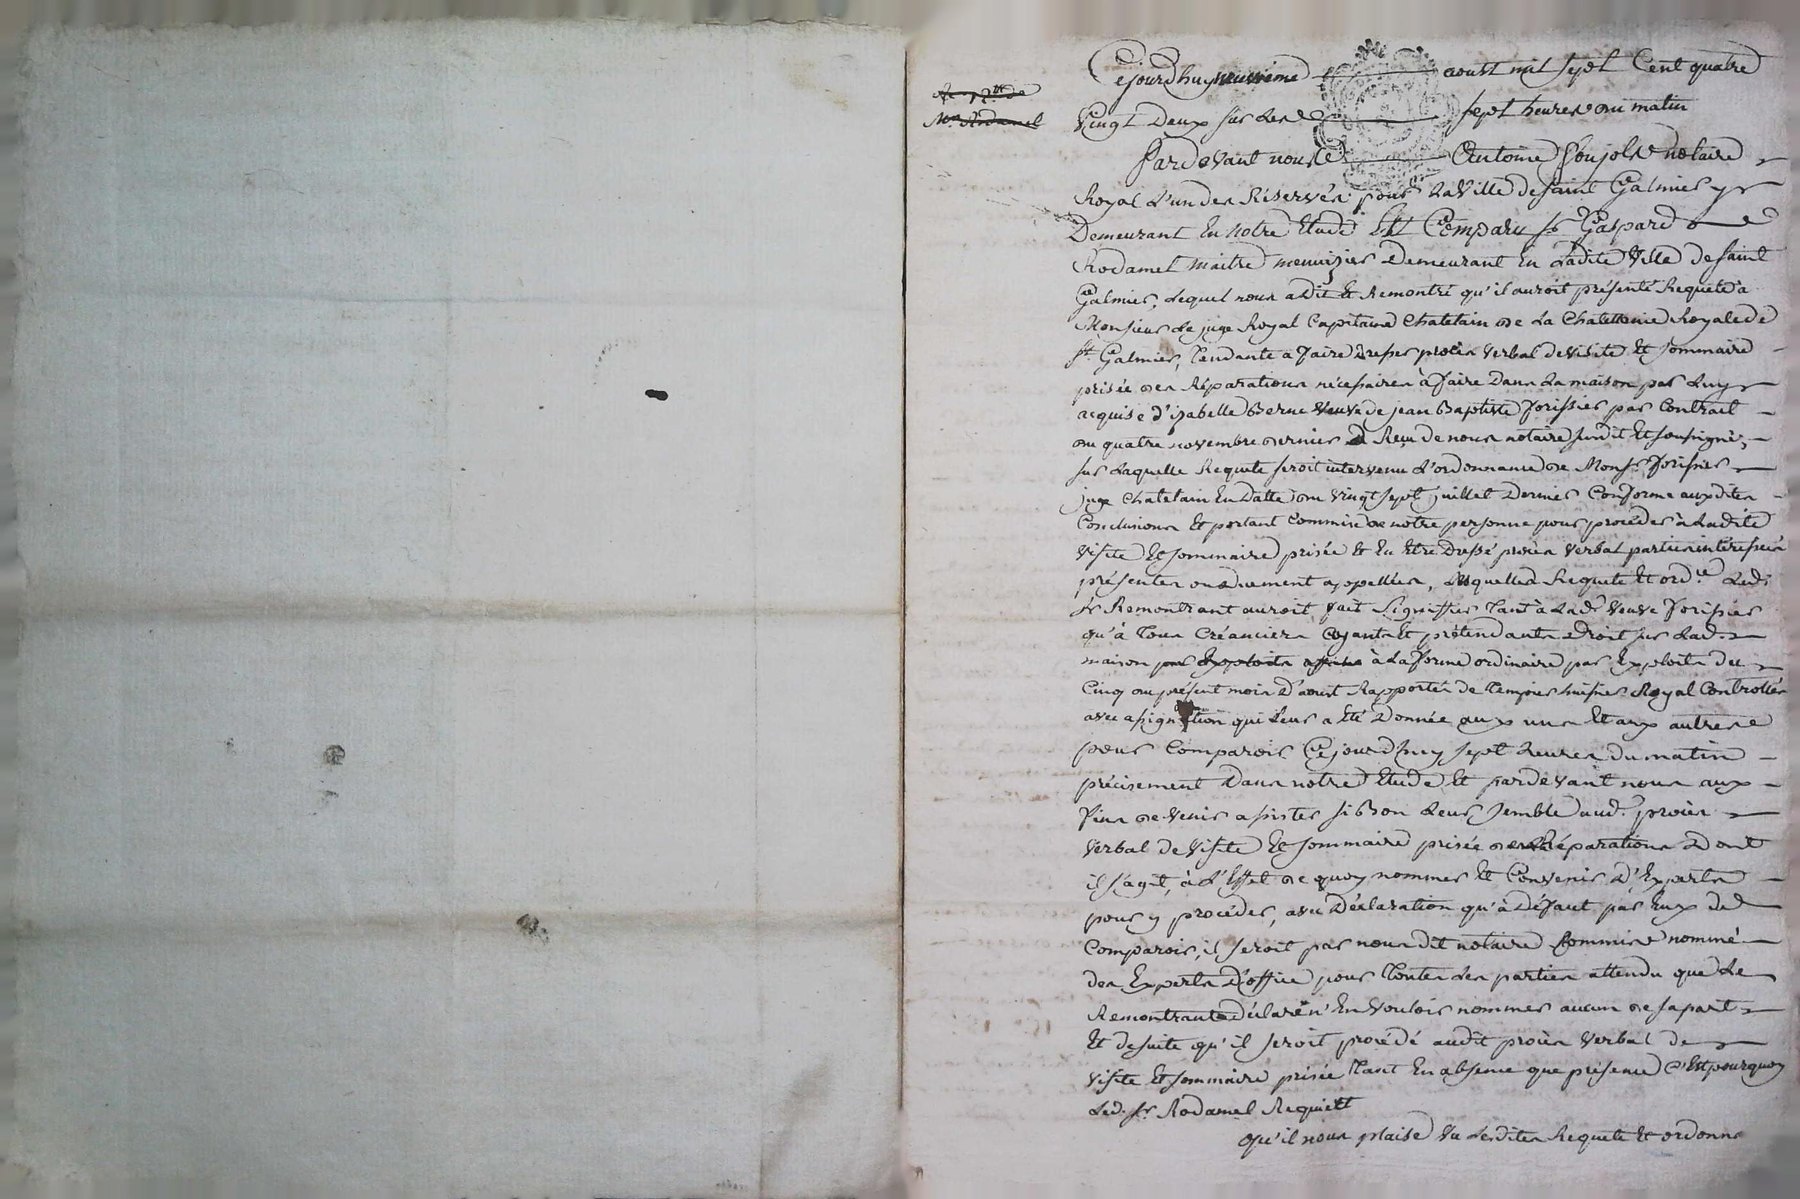 Cejourdhuy neuvieme aoust mil sept Cent quatre
Vingt Deux sur Les sept heures du matin
Pardevant nous Antoine Soujols notaire
Royal L'un des Réservés pour La Ville de saint Galmier y
Demeurant En notre Etude Est Comparu sr Gaspard
Rodamel maitre menuizier Demeurant En Ladite Ville de saint
Galmier, Lequel nous a dit Et Remontré qu'il auroit présenté Requete à
Monsieur Le juge Royal Capitaine Chatelain de La Chatellenie Royale de
St. Galmier, Tendante a faire Dresser procès Verbal de Visite Et sommaire
prisée des Réparations nécessaires à faire Dans La maison par Luy
acquise d'izabelle Berne Veuve de jean Baptiste forissier par Contrait
du quatre novembre dernier Reçu de nous notaire susdit Et soussigné,
sur Laquelle Requete seroit intervenu L'ordonnance de Monsr forissier
juge Chatelain En Datte du Vingt sept juillet Dernier Conforme auxdites
Conclusions Et portant Commise de notre personne pour procéder à Ladite
Visite Et sommaire prisée Et En Etre Dressé procès Verbal parties interessées
présentes ou Duement appellées, Lesquelles Requete Et ord.ce Ledt
Sr Remontrant auroit fait signiffier Tant à Lade Veuve forissier
qu'à Tous Créanciers Et prétendants Droit sur Lad.
maison par Exploits à La forme ordinaire par Exploits du
Cinq du présent mois D'aoust Rapportés de Tempier huissier Royal Controllés
avec assignation qui Leur a Eté Donnée aux uns Et aux autres
pour Comparoir Cejourdhuy sept heures du matin
précisement Dans notre Etude Et pardevant nous aux
fins de Venir assister si Bon Leur semble aud. procès
Verbal de Visite Et sommaire prisée des Réparations Dont
il s'agit, à L'Effet de quoy nommer Et Convenir D'Experts
pour y procéder, avec Déclaration qu'à Défaut par Eux de
Comparoir, il seroit par nous dit notaire Commis nommé
des Experts D'office pour Toutes Les parties attendu que Le
Remontrant déclare n'En Vouloir nommer aucun de sa part
Et de suite qu'il seroit procédé audit procès Verbal de
Visite Et sommaire prisée Tant En absence que présence C'Est pourquoy
Led. sr Rodamel Requiert
qu'il nous plaise Vu Lesdites Requete Et ordonn